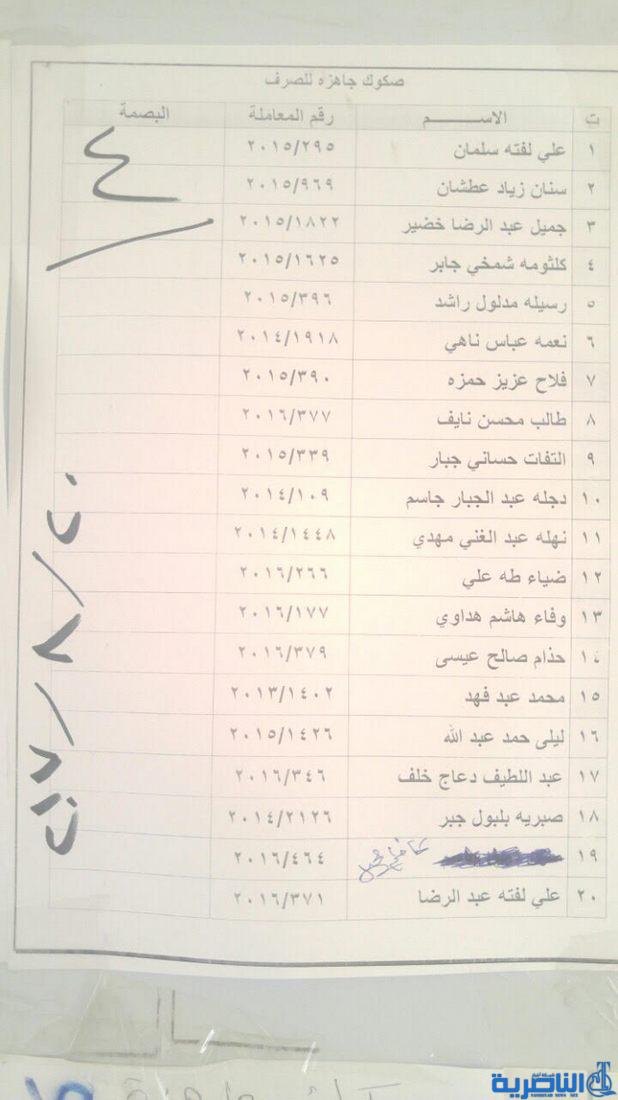 صكوك جاهزه للصرف
ت الاســـــم رقم المعاملة البصمة
١ علي لفته سلمان ٢٠١٥/٢٩٥
٢ سنان زياد عطشان ٢٠١٥/٩٦٩
٣ جميل عبد الرضا خضير ٢٠١٥/١٨٢٢
٤ كلثومه شمخي جابر ٢٠١٥/١٦٢٥
٥ رسيله مدلول راشد ٢٠١٥/٣٩٦
٦ نعمه عباس ناهي ٢٠١٤/١٩١٨
٧ فلاح عزيز حمزه ٢٠١٥/٣٩٠
٨ طالب محسن نايف ٢٠١٦/٣٧٧
٩ التفات حساني جبار ٢٠١٥/٣٣٩
١٠ دجله عبد الجبار جاسم ٢٠١٤/١٠٩
١١ نهله عبد الغني مهدي ٢٠١٤/١٤٤٨
١٢ ضياء طه علي ٢٠١٦/٢٦٦
١٣ وفاء هاشم هداوي ٢٠١٦/١٧٧
١٤ حذام صالح عيسى ٢٠١٦/٣٧٩
١٥ محمد عبد فهد ٢٠١٣/١٤٠٢
١٦ ليلى حمد عبد الله ٢٠١٥/١٤٢٦
١٧ عبد اللطيف دعاج خلف ٢٠١٦/٣٤٦
١٨ صبريه بلبول جبر ٢٠١٤/٢١٢٦
١٩ ٢٠١٦/٤٦٤
٢٠ علي لفته عبد الرضا ٢٠١٦/٣٧١
٤
شبكة اخبار
الناصرية
NASIRIYAH NEWS NET